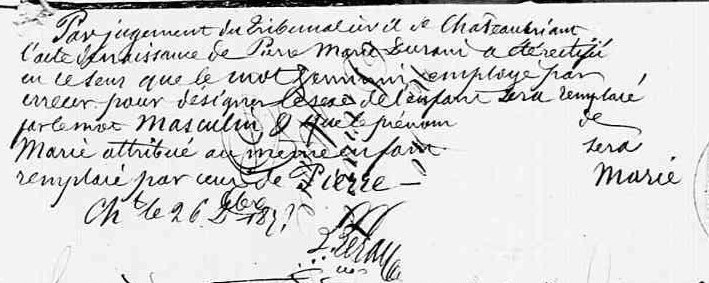 Par jugement du Tribunal civil de Chateaubriant
l'acte de naissance de Pierre Marie Durani a été rectifié
en ce sens que le mot féminin, employé par
erreur pour désigner le sexe de l'enfant sera remplacé
par le mot Masculin & que le prénom de
Marie attribué au même enfant sera
remplacé par ceux de Pierre — Marie
Ch^t le 26 D^bre